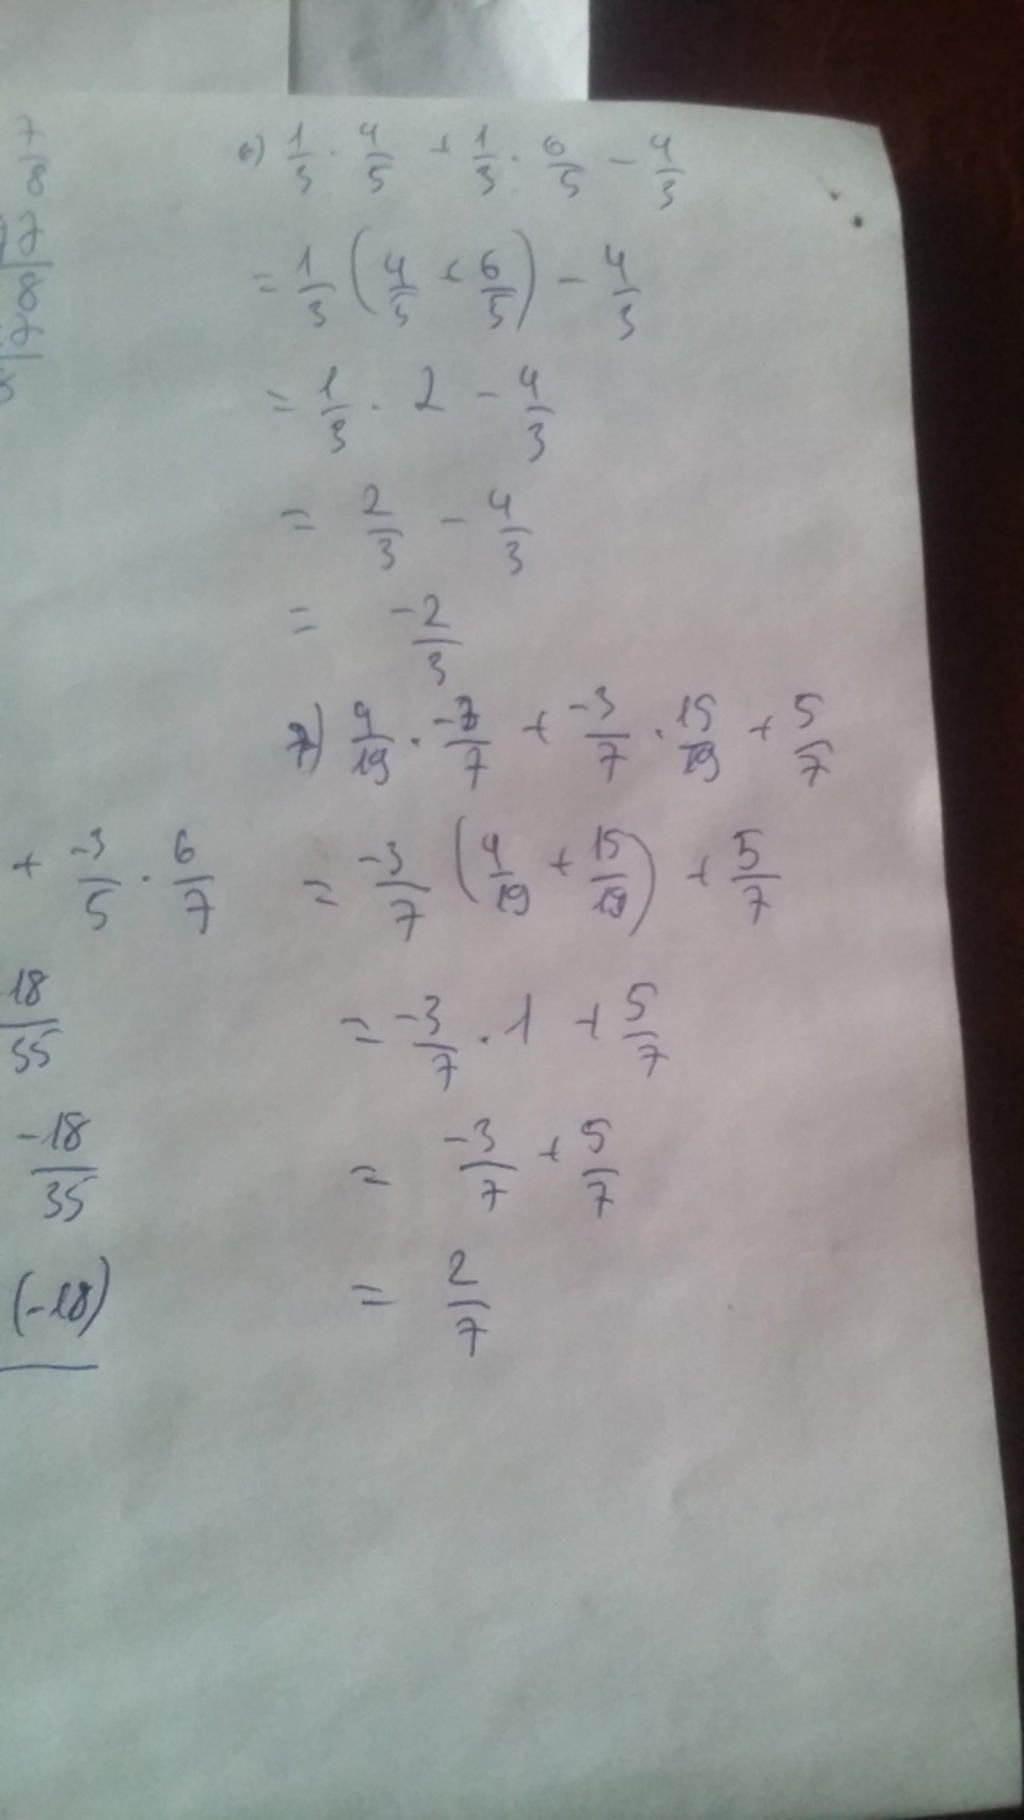 7/8
6) 1/3 · 4/5 + 1/3 · 6/5 - 4/3
= 1/3 (4/5 + 6/5) - 4/3
= 1/3 · 2 - 4/3
= 2/3 - 4/3
= -2/3
7) 4/19 · -3/7 + -3/7 · 15/19 + 5/7
+ -3/5 · 6/7
= -3/7 (4/19 + 15/19) + 5/7
18/35
= -3/7 · 1 + 5/7
-18/35
= -3/7 + 5/7
(-18)
= 2/7